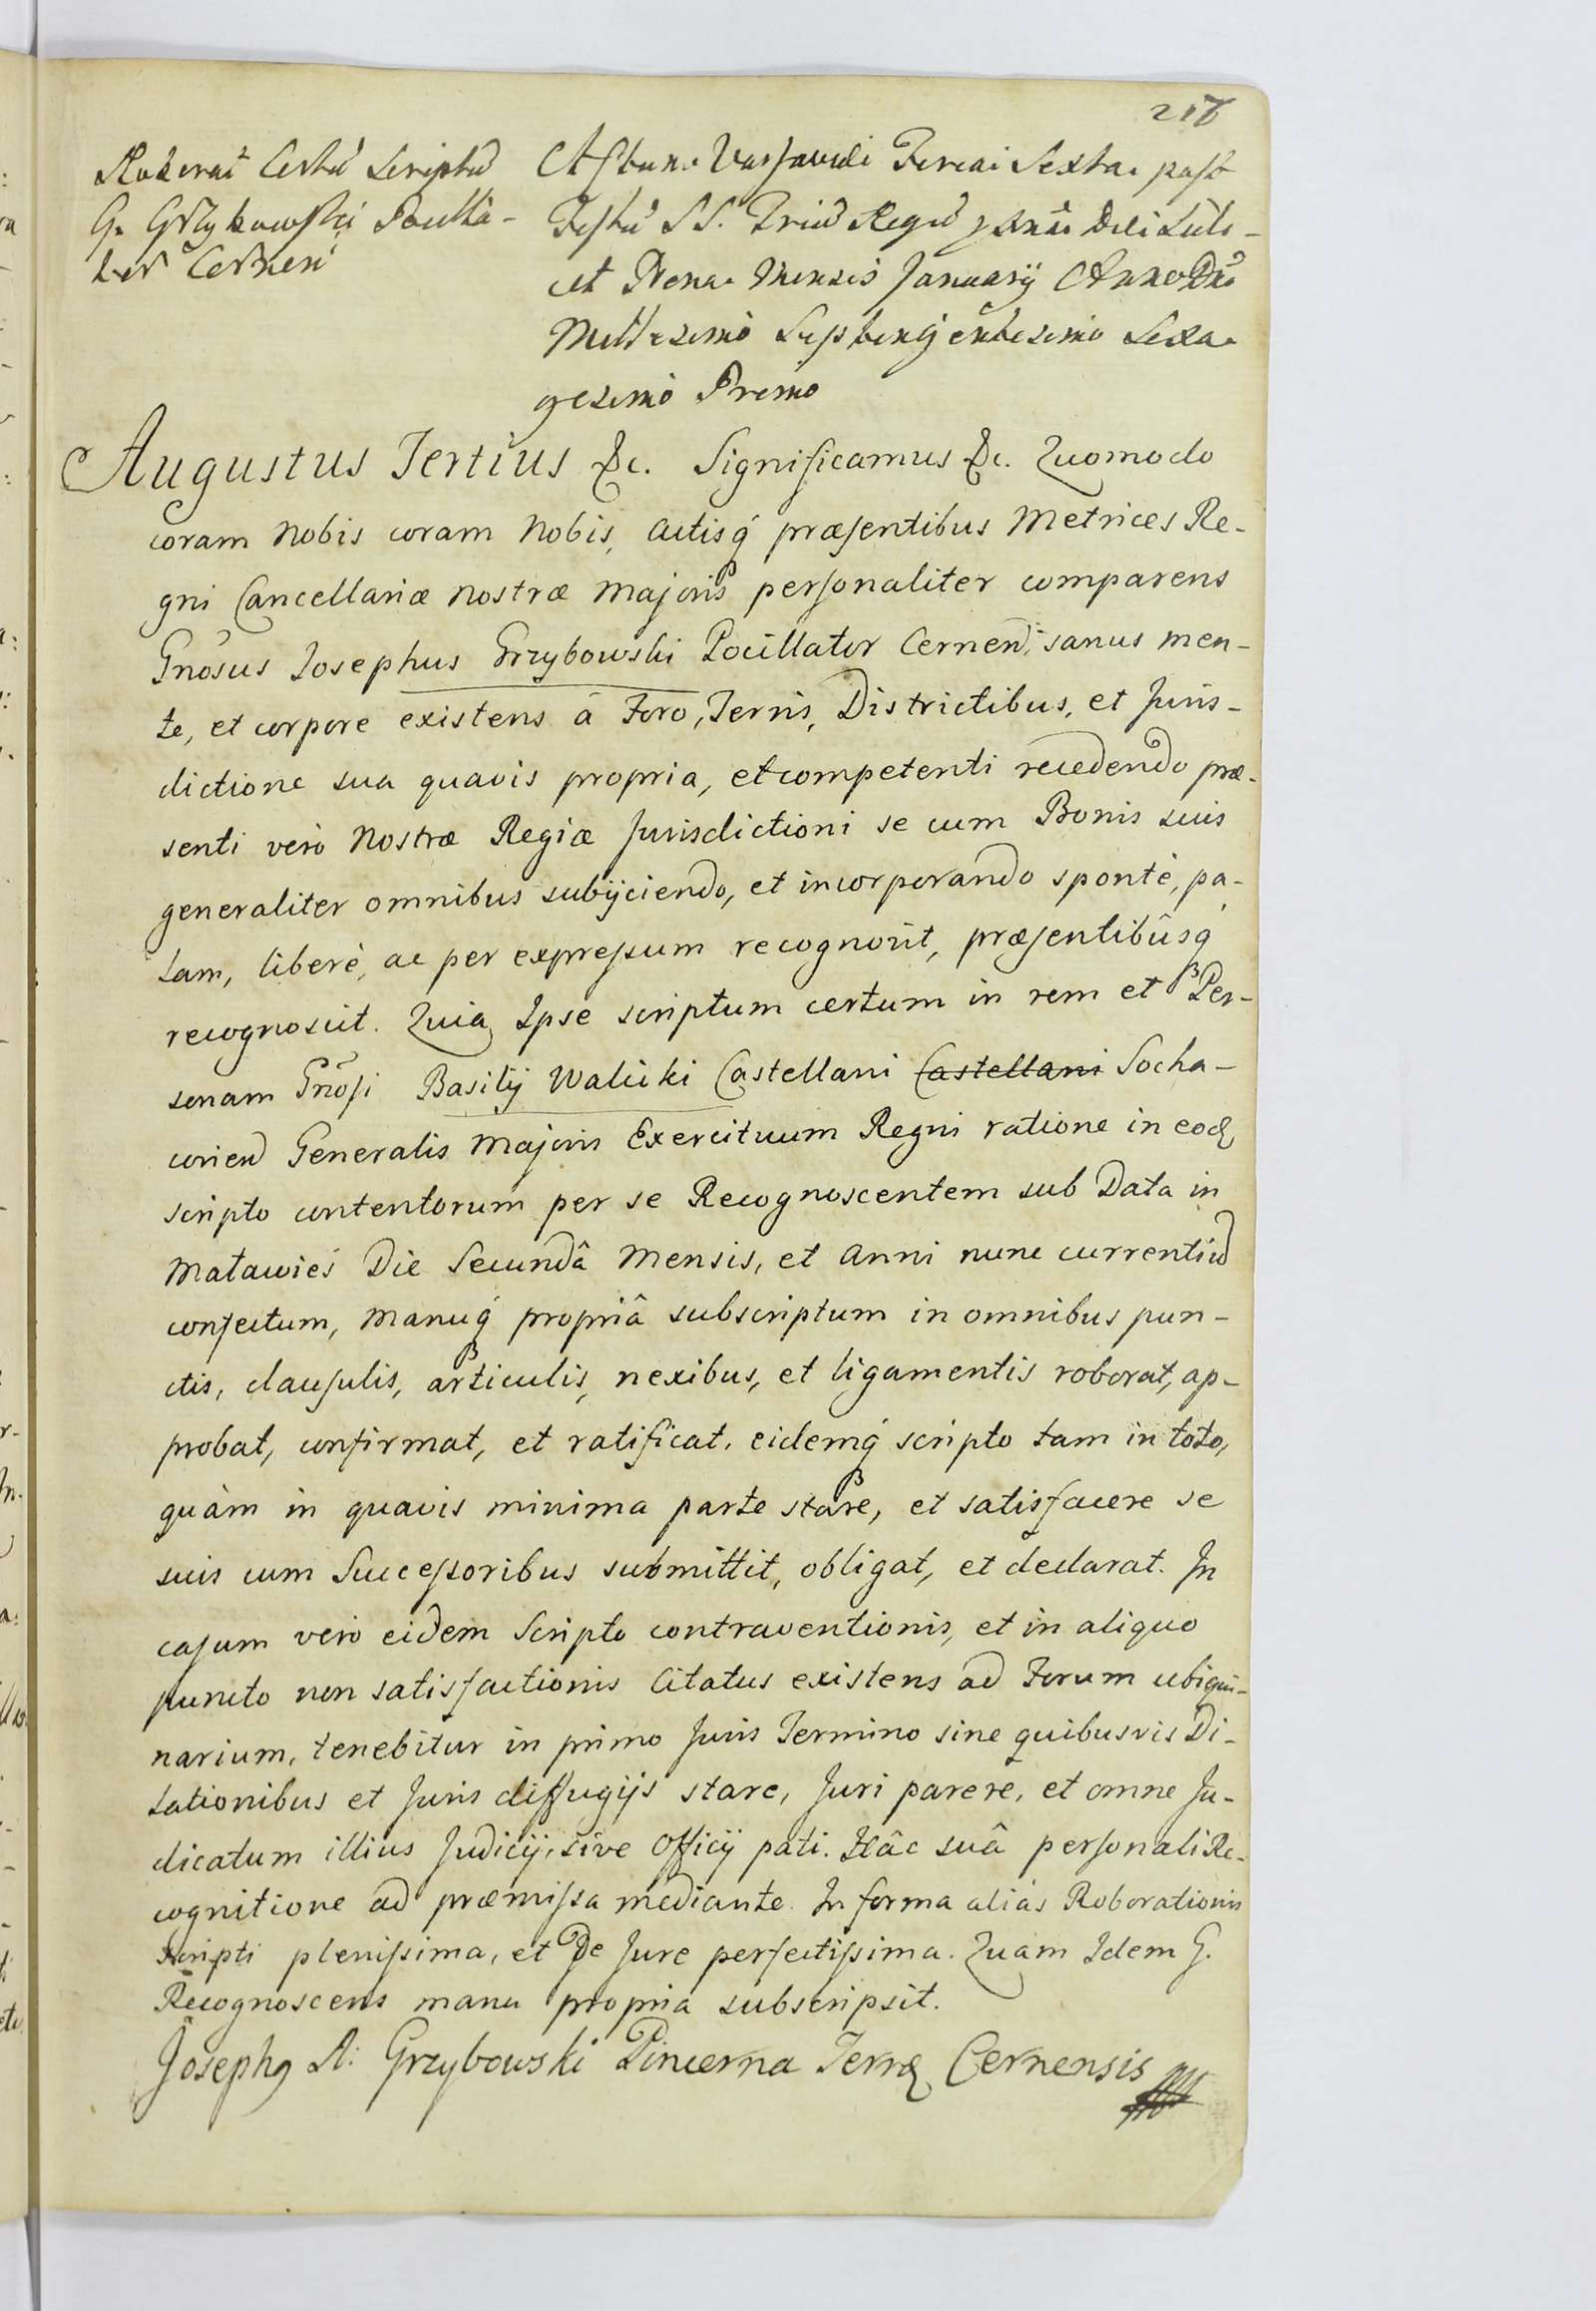 216
Roborat Certū Scriptū
G. Grzybowski Pocilla-
tor Cernen̄
Actum Varsaviæ Feria Sexta post
Festū SS. Triū Regū
et Nona Mensis January Anno Dni
Millesimo Septingentesimo Sexa-
gesimo Primo
Augustus Tertius &c. Significamus &c. Quomodo
coram Nobis coram Nobis, Actisq́ præsentibus Metrices Re-
gni Cancellariæ Nostræ Majoris personaliter comparens
Gnosus Josephus Grzybowski Pocillator Cernen̄, sanus men-
te, et corpore existens à Foro, Terris, Districtibus, et Juris-
dictione sua quavis propria, et competenti recedendo præ-
senti verò Nostræ Regiæ Jurisdictioni se cum Bonis suis
generaliter omnibus subÿciendo, et incorporando sponte, pa-
lam, liberè, ac per expressum recognovit, præsentibûsq́
recognoscit. Quia Ipse scriptum certum in rem et Per-
sonam Gnosi Basilÿ Walicki Castellani Castellani Socha-
covien̄ Generalis Majoris Exercituum Regni ratione in eoq
scripto contentorum per se Recognoscentem sub Data in
Maławieś Die Secundâ Mensis, et Anni nunc currentiū
confectum, Manuq́ propriâ subscriptum in omnibus pun-
ctis, clausulis, articulis, nexibus, et ligamentis roborat, ap-
probat, confirmat, et ratificat, eidemq́ scripto tam in toto,
quàm in quavis minima parte stare, et satisfacere se
suis cum Successoribus submittit, obligat, et declarat. In
casum vero eidem Scripto contraventionis, et in aliquo
puncto non satisfactionis Citatus existens ad Forum ubiqui-
narium, tenebitur in primo Juris Termino sine quibusvis Di-
lationibus et Juris diffugÿs stare, Juri parere, et omne Ju-
dicatum illius Judicÿ, sive Officÿ pati. Hâc suâ personali Re-
cognitione ad præmissa mediante. In forma aliàs Roborationis
Scripti plenissima, et De Jure perfectissima. Quam Idem G.
Recognoscens manu propria subscripsit.
Josephq A: Grzybowski Pincerna Terræ Cernensis